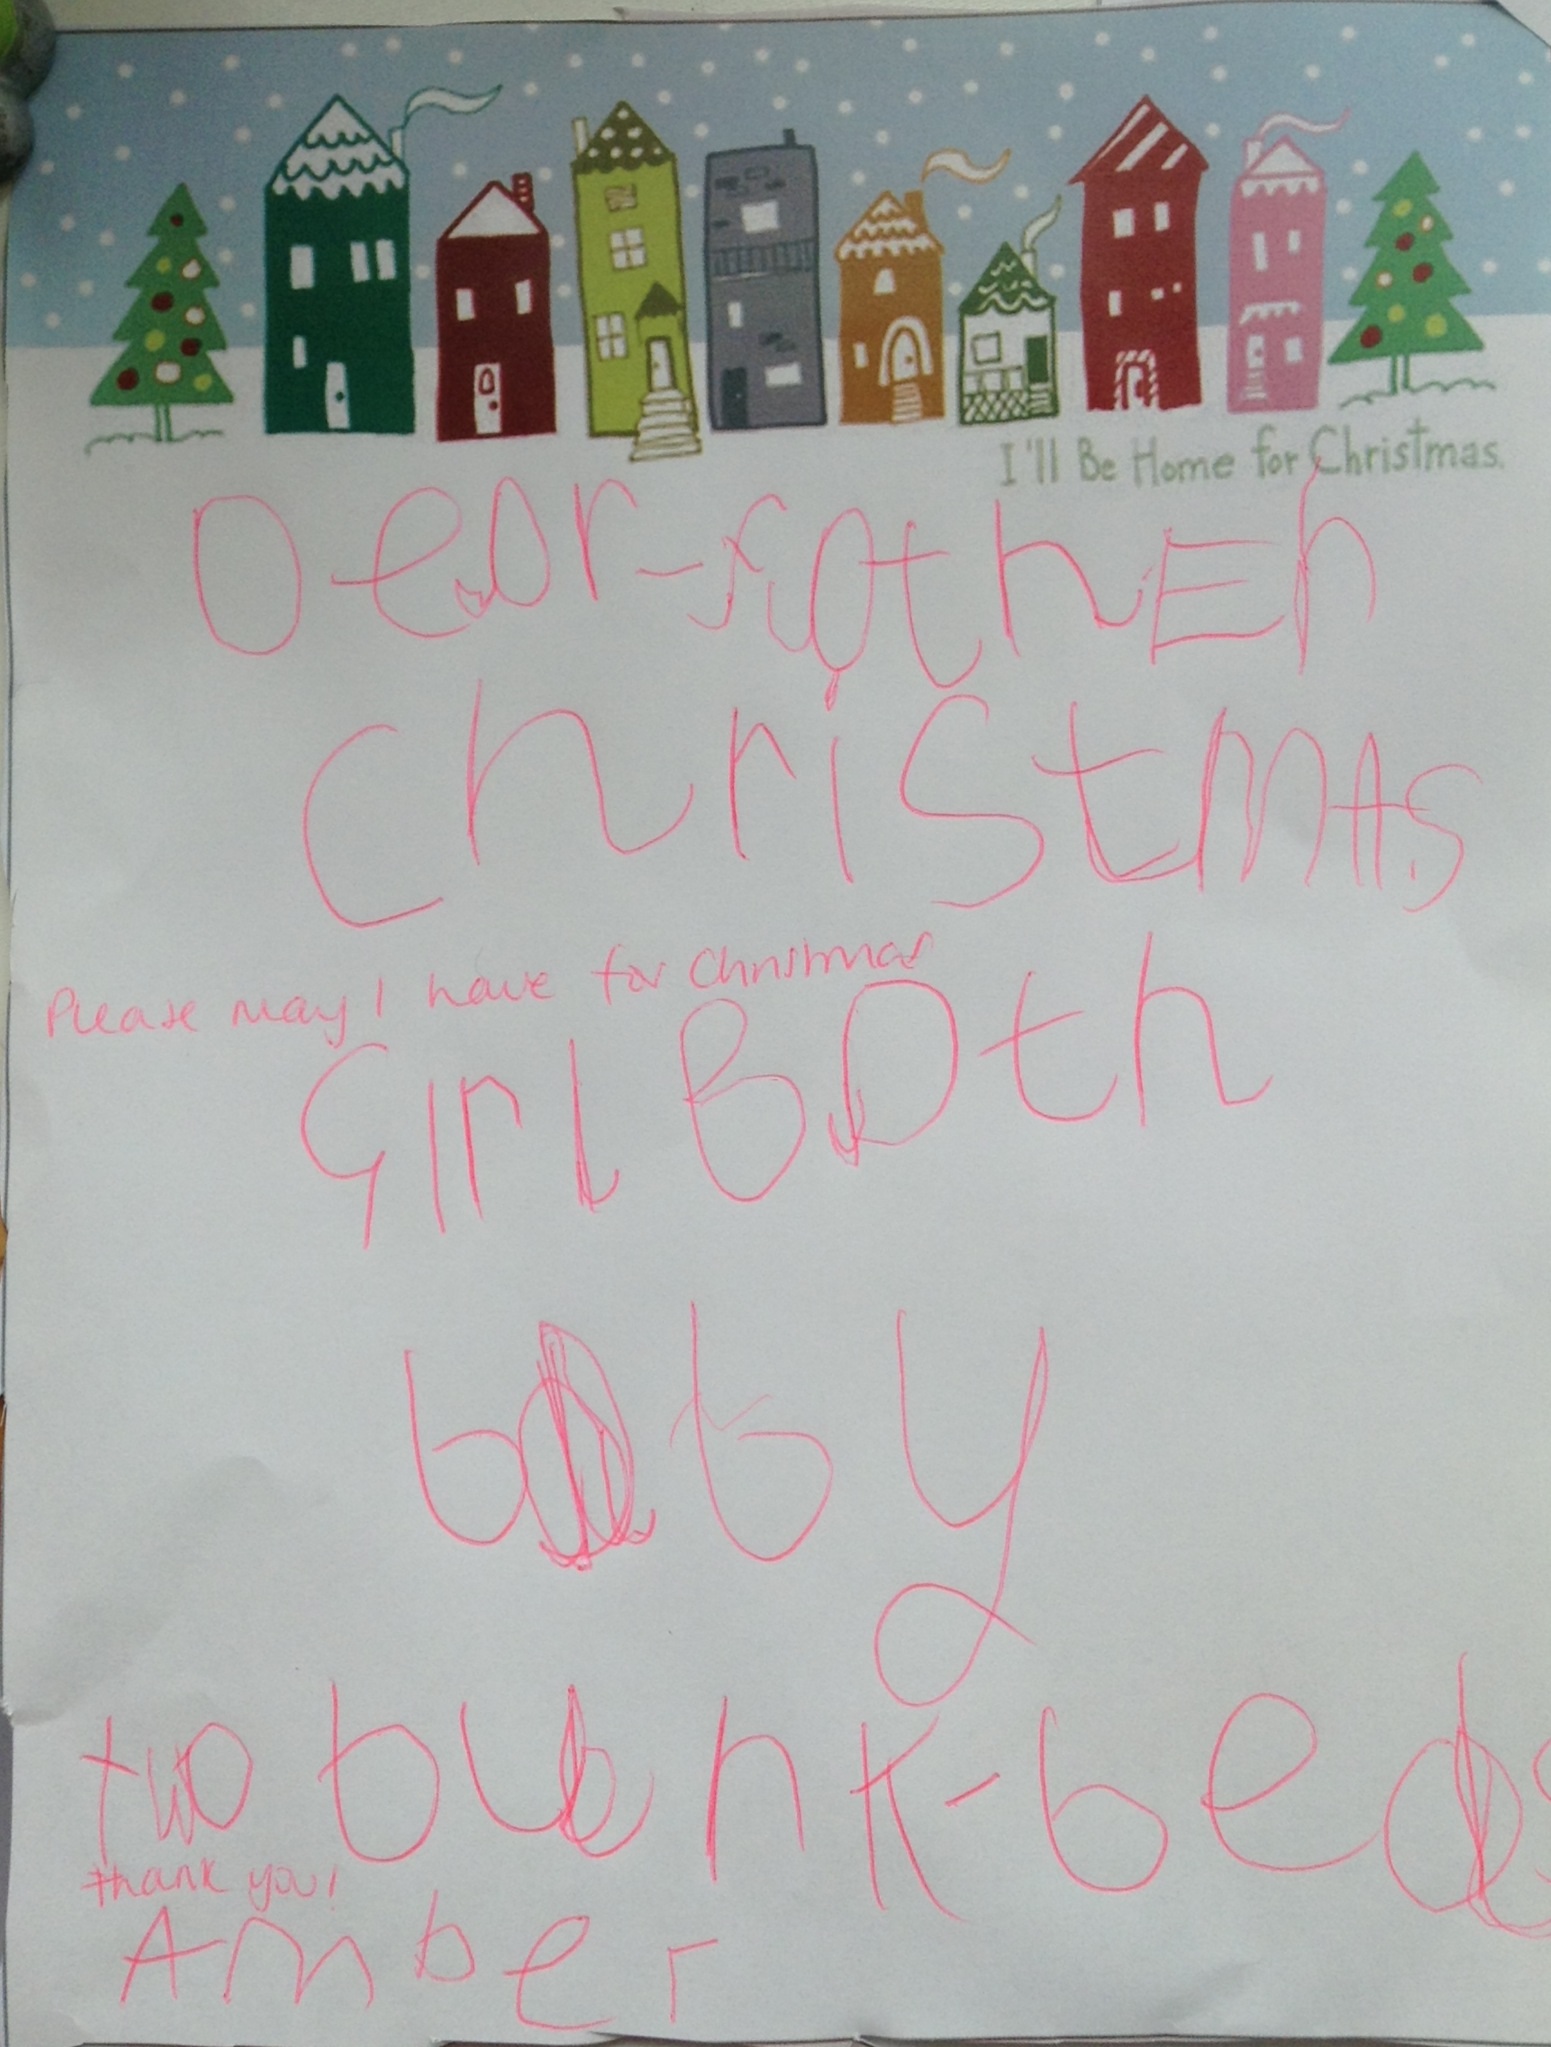 I'll Be Home for Christmas.
Dear-fathEr
christmAs
Please may I have for Christmas
Girl Bath
baby
two bunk-beds
thank you!
Amber